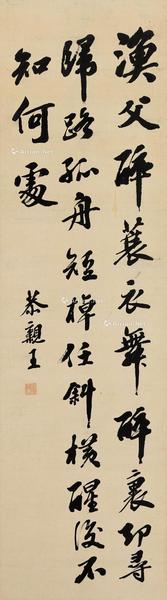 漁父醉蓑衣舞醉裏却尋
歸路孤舟短棹任斜横醒後不
知何處
恭親王